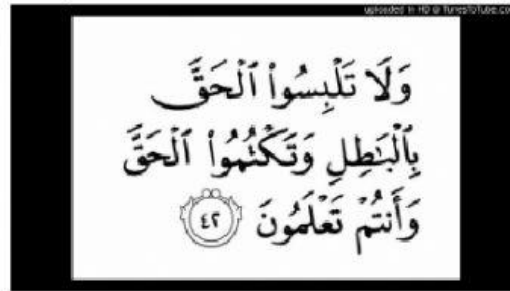 uploaded in HD @ TunesToTube.com
وَلَا تَلْبِسُوا۟ ٱلْحَقَّ
بِٱلْبَـٰطِلِ وَتَكْتُمُوا۟ ٱلْحَقَّ
وَأَنتُمْ تَعْلَمُونَ ٤٢